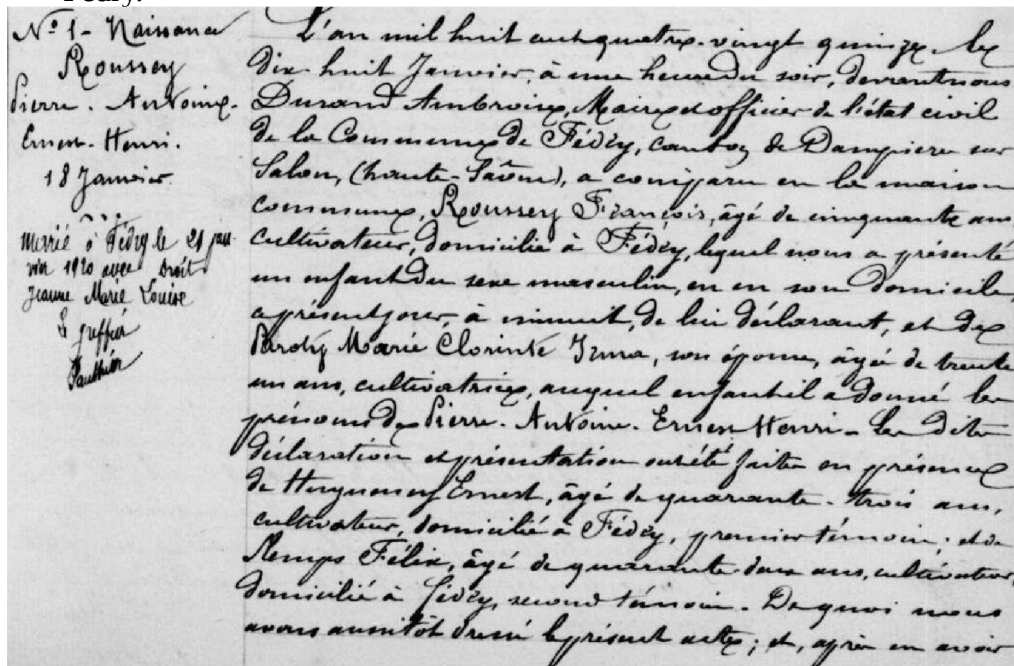 Fédry.
N° 1 - Naissance
Roussey
Pierre - Antoine -
Ernest - Henri.
18 Janvier
Marié à Fédry le 21 jan
vier 1920 avec Droit
Jeanne Marie Louise
Le greffier
L'an mil huit cent quatre-vingt quinze, le
dix-huit Janvier, à une heure du soir, devant nous
Durand Ambroise, Maire et officier de l'état civil
de la Commune de Fédry, canton de Dampierre sur
Salon, (haute-Saône), a comparu en la maison
commune, Roussey François, âgé de cinquante ans
cultivateur, domicilié à Fédry, lequel nous a présenté
un enfant du sexe masculin, né en son domicile,
à présent jour, à minuit, de lui déclarant, et de
Marie Clorinte Irma, son épouse, âgée de trente
un ans, cultivatrice, auquel enfant il a donné les
prénoms de Pierre - Antoine - Ernest Henri - Les dites
déclaration et présentation ont été faites en présence
de Huguenet Ernest, âgé de quarante-trois ans,
cultivateur, domicilié à Fédry, premier témoin ; et de
Félix, âgé de quarante deux ans, cultivateur,
domicilié à Fédry, second témoin. De quoi nous
avons aussitôt dressé le présent acte ; et, après en avoir